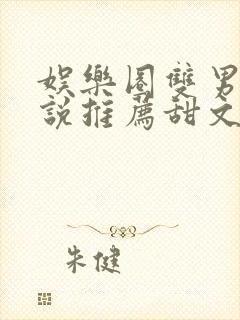 娛樂圈雙男
說推薦甜文
朱健